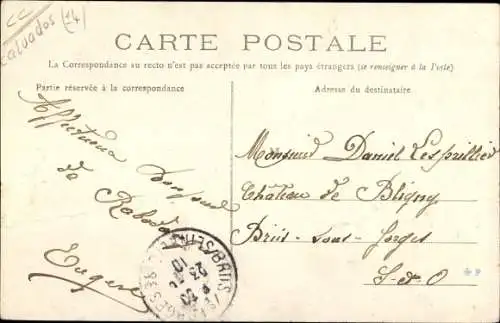 CC
Calvados (14)
CARTE POSTALE
La Correspondance au recto n'est pas acceptée par tous les pays étrangers (se renseigner à la Poste)
Partie réservée à la correspondance
Affectueux bonjour
de
Eugène
Adresse du destinataire
Monsieur Daniel Lespieullier
Château de Bligny
Briis-sous-Forges
S-et-O
BRIIS